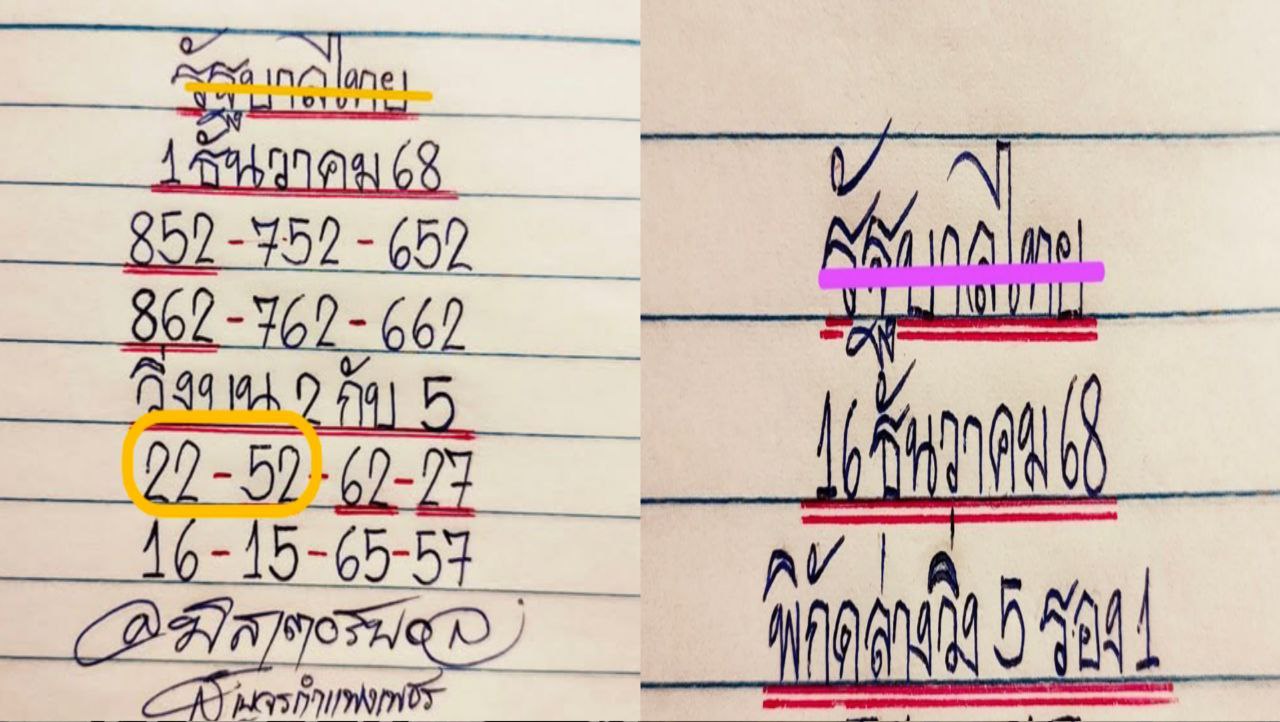 รัฐบาลไทย
1 ธันวาคม 68
852 - 752 - 652
862 - 762 - 662
วิ่งบน 2 กับ 5
22 - 52 - 62 - 27
16 - 15 - 65 - 57
@มิสเตอร์บอล
เพชรกำแพงเพชร
รัฐบาลไทย
16 ธันวาคม 68
พิกัดล่างวิ่ง 5 รอง 1